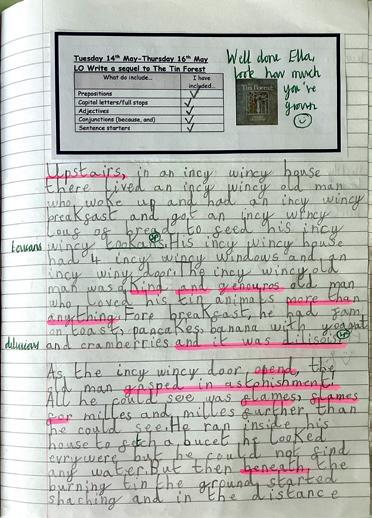 Tuesday 14th May-Thursday 16th May
LO Write a sequel to The Tin Forest
What do include... I have included...
Prepositions ✓
Capital letters/full stops ✓
Adjectives ✓
Conjunctions (because, and) ✓
Sentence starters ✓
Well done Ella,
look how much
you've
grown
Tin Forest
Upstairs, in an incy wincy house
there lived an incy wincy old man
who woke up and had an incy wincy
breakfast and got an incy wincy
to feed his incy
toucans
wincy His incy wincy house
had 4 incy wincy windows and an
incy winy door. The incy wincy old
man was a kind and genouros old man
who loved his tin animals more than
anything. Fore breakfast, he had jam
on toast, pancakes, banana with
delicious
and cranberries and it was
As the incy wincy door opend, the
old man gasped in astonishment!
All he could see was flames, flames
for milles and milles further, than
he could see. He ran inside his
house to fetch a bucet he looked
evrywere but he could not find
any water. But then beneath the
burning tin the ground started
shaching and in the distance